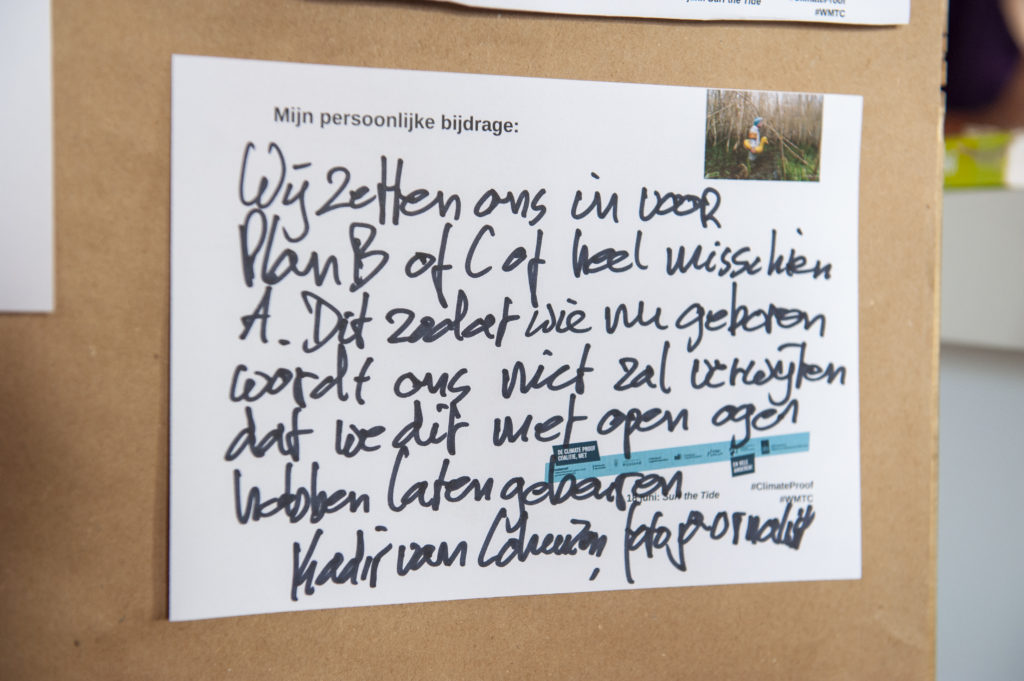 Surf the Tide
#ClimateProof
#WMTC
Mijn persoonlijke bijdrage:
Wij zetten ons in voor
Plan B of C of heel misschien
A. Dit zodat wie nu geboren
wordt ons niet zal verwijten
dat we dit met open ogen
hebben laten gebeuren
Kadir van Lohuizen, fotojournalist
DE CLIMATE PROOF
COALITIE, MET
EN VELE
ANDEREN!
#ClimateProof
juni: Surf the Tide
#WMTC